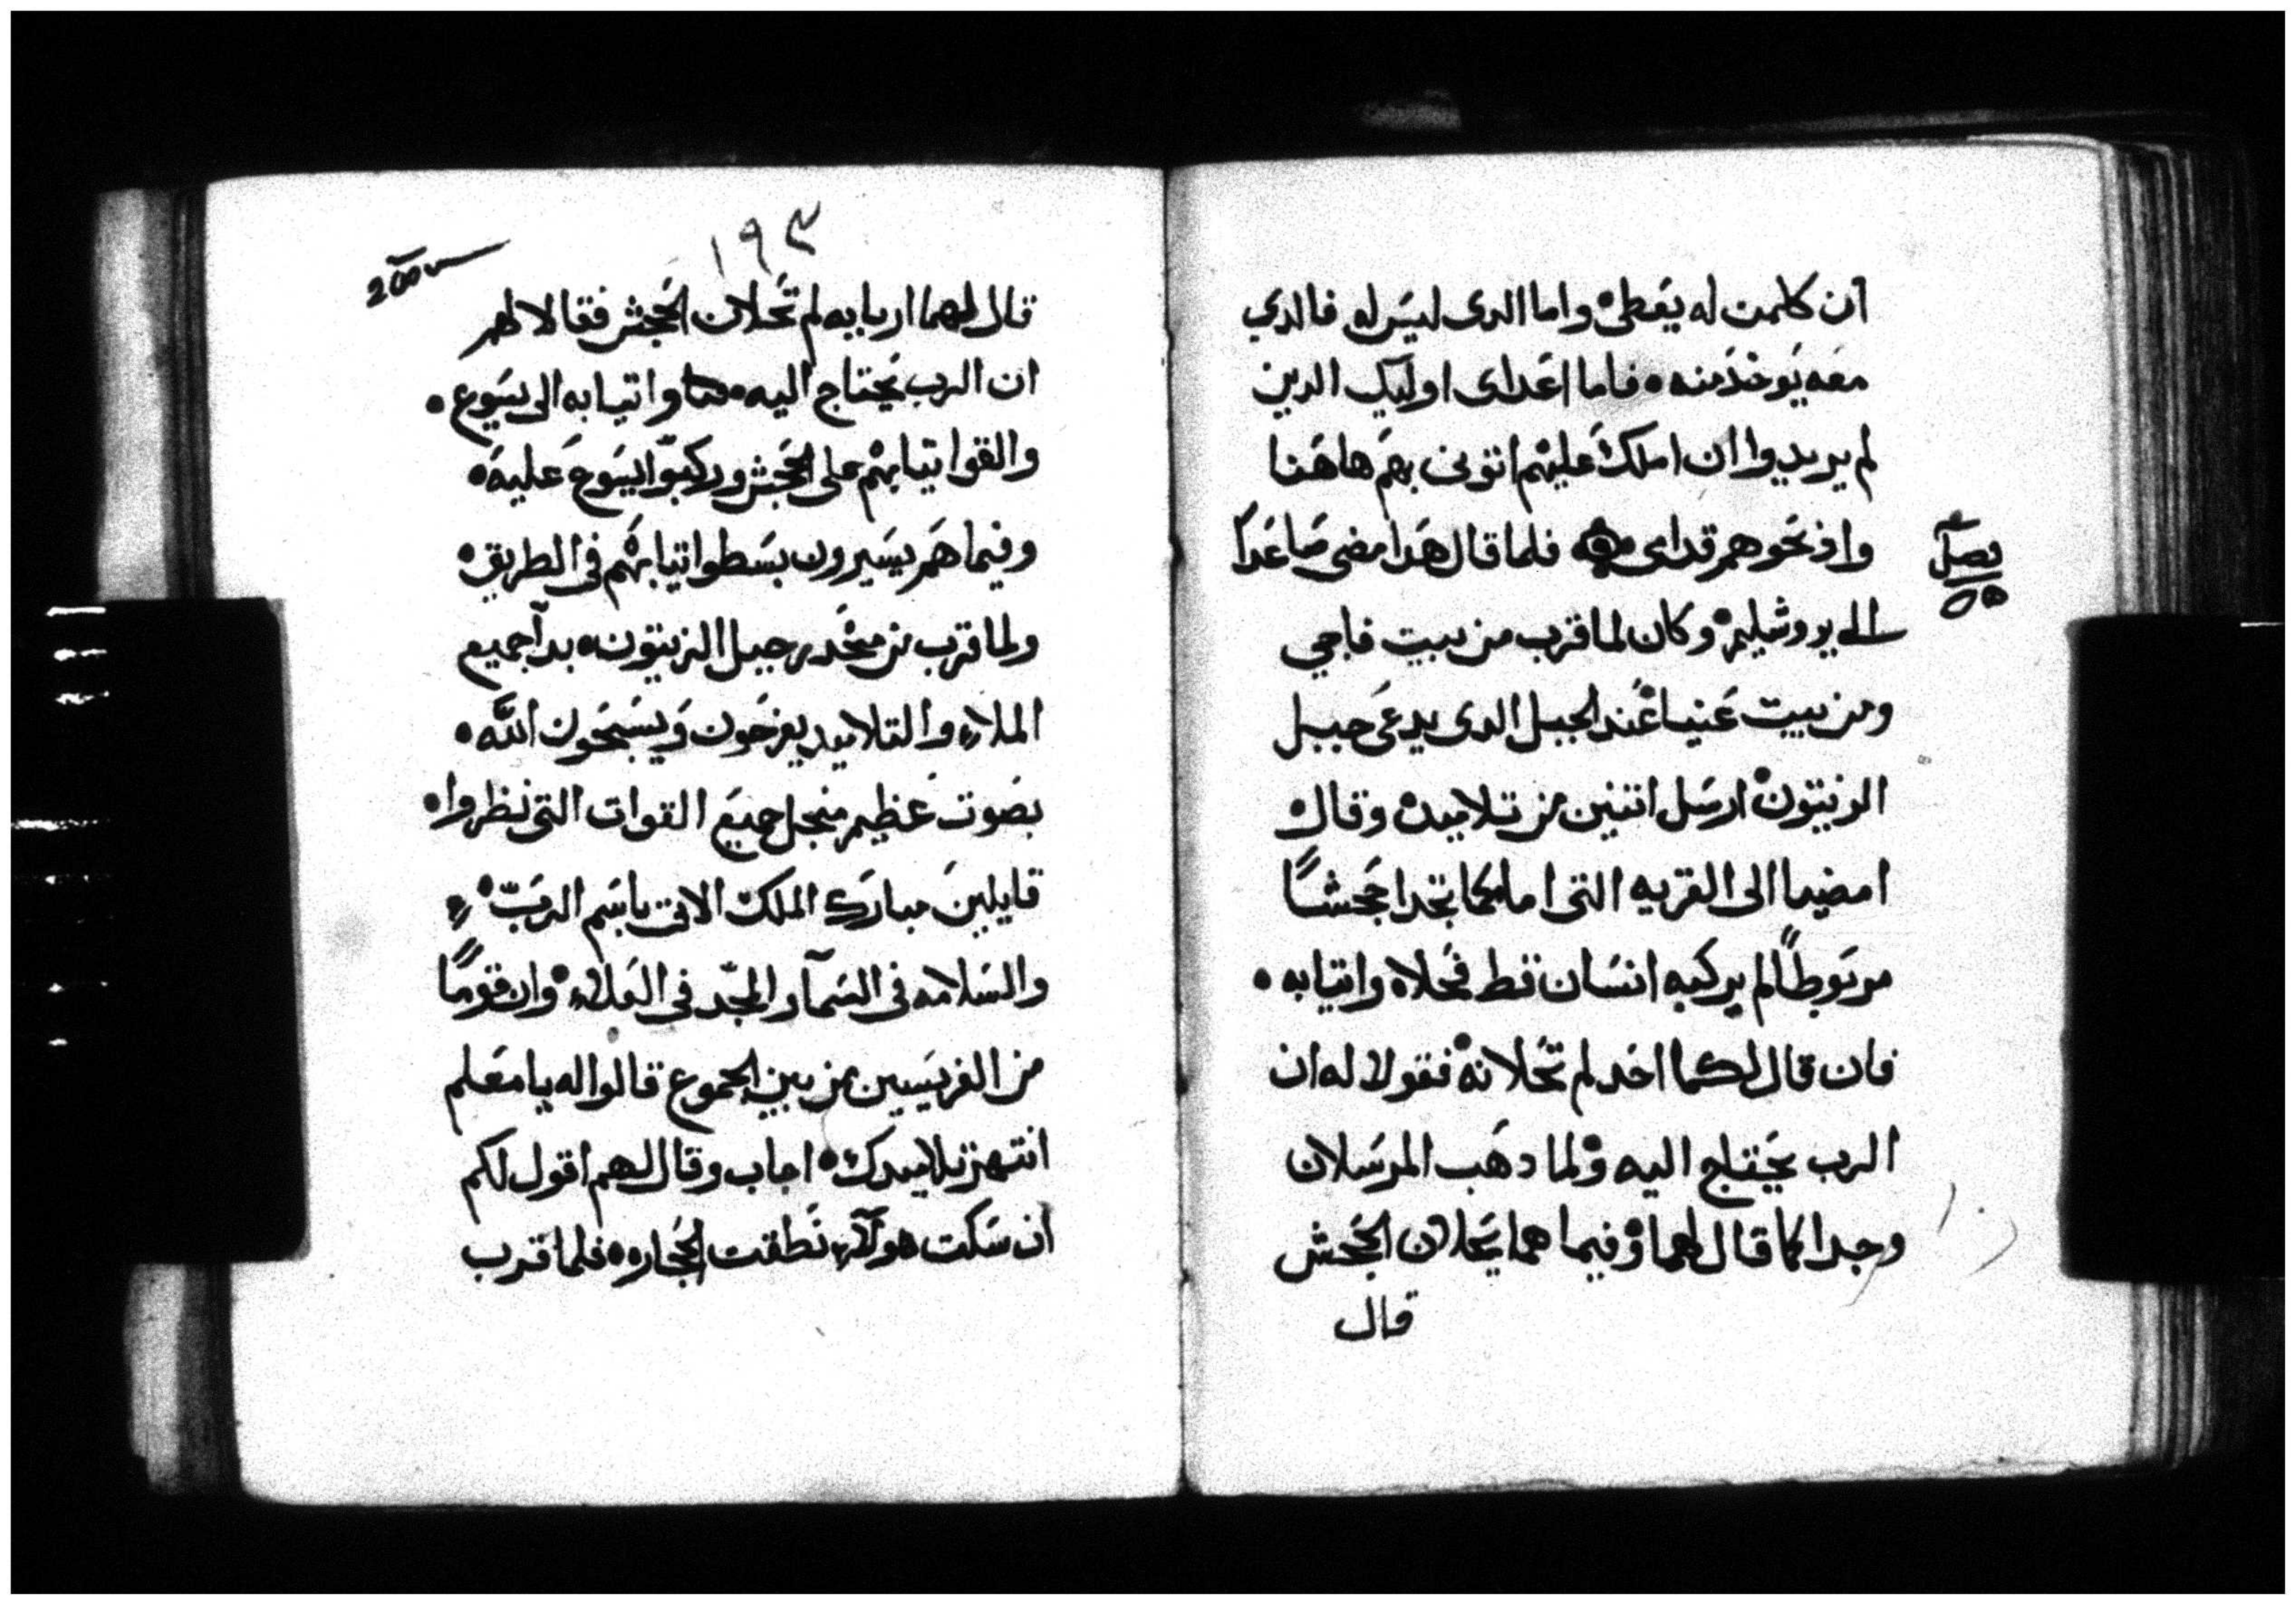 ان كلمن له يعطى واما الدى ليس له فالدي
معه يوخذ منه فاما اعداى اوليك الدين
لم يريدوا ان املك عليهم اتونى بهم هاهنا
واذبحوهم قدامى فلما قال هدا مضى صاعدا
الى يروشليم وكان لما قرب من بيت فاجي
ومن بيت عنيا عند الجبل الدى يدعى جبل
الزيتون ارسل اتنين من تلاميده وقال
امضيا الى القريه التى امامكما تجدا جحشا
مربوطا لم يركبه انسان قط فحلاه واتيا به
فان قال لكما احد لم تحلانه فقولا له ان
الرب يحتاج اليه ولما دهب المرسلان
وجدا كما قال لهما وفيما هما يحلان الجحش
قال
١٩٣
قال لهما اربابه لم تحلان الجحش فقالا لهم
ان الرب يحتاج اليه واتيا به الى يسوع
والقوا تيابهم على الجحش وركبوا يسوع عليه
وفيما هم يسيرون بسطوا تيابهم فى الطريق
ولما قرب من منحدر جبل الزيتون بدا جميع
الملاء والتلاميد يفرحون ويسبحون الله
بصوت عظيم منجل جميع القوات التى نظروا
قايلين مبارك الملك الاتى باسم الرب
والسلامه فى السما والمجد فى العلاء وان قوما
من الفريسيين من بين الجموع قالوا له يا معلم
انتهر تلاميدك اجاب وقال لهم اقول لكم
ان سكت هولاء نطقت الحجاره فلما قرب